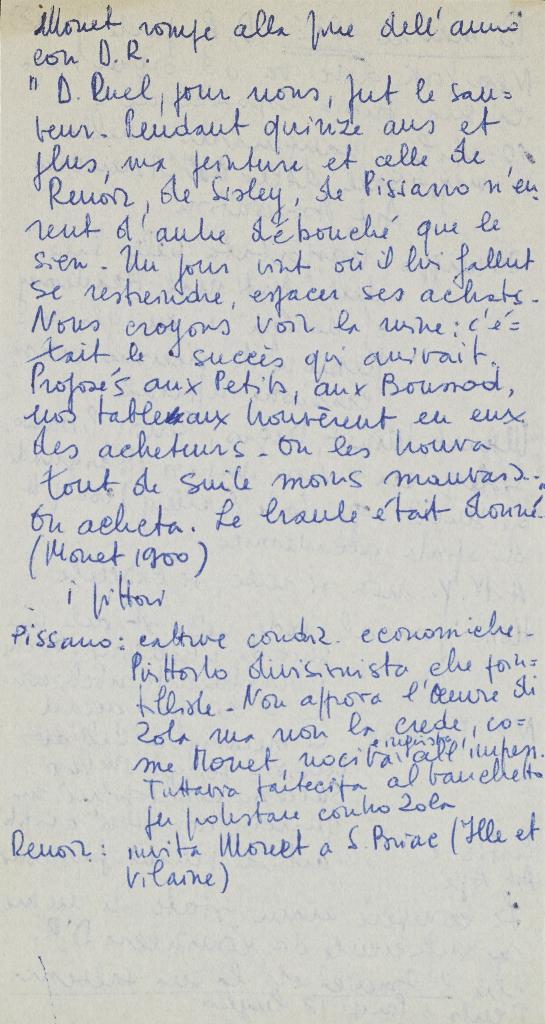 Monet rompe alla fine dell'anno
con D.R.
" D. Ruel, pour nous, fut le sau=
veur. Pendant quinze ans et
plus, ma peinture et celle de
Renoir, de Sisley, de Pissarro n'eu
rent d'autre débouché que le
sien. Un jour vint où il lui fallut
se restreindre, espacer ses achats.
Nous croyons voir la ruine: c'é=
tait le succès qui arrivait.
Proposés aux Petits, aux Boussod,
nos tableaux trouvèrent en eux
des acheteurs. On les trouva
tout de suite moins mauvais.
On acheta. Le branle était donné."
(Monet 1900)
i pittori
Pissarro: cattive condiz. economiche.
Piuttosto divisionista che poin=
tilliste. Non approva l'Oeuvre di
Zola ma non la crede, co=
me Monet, nociva all'impress.
Tuttavia partecipa al banchetto
per protestare contro Zola
Renoir: invita Monet a S. Briac (Ille et
Vilaine)